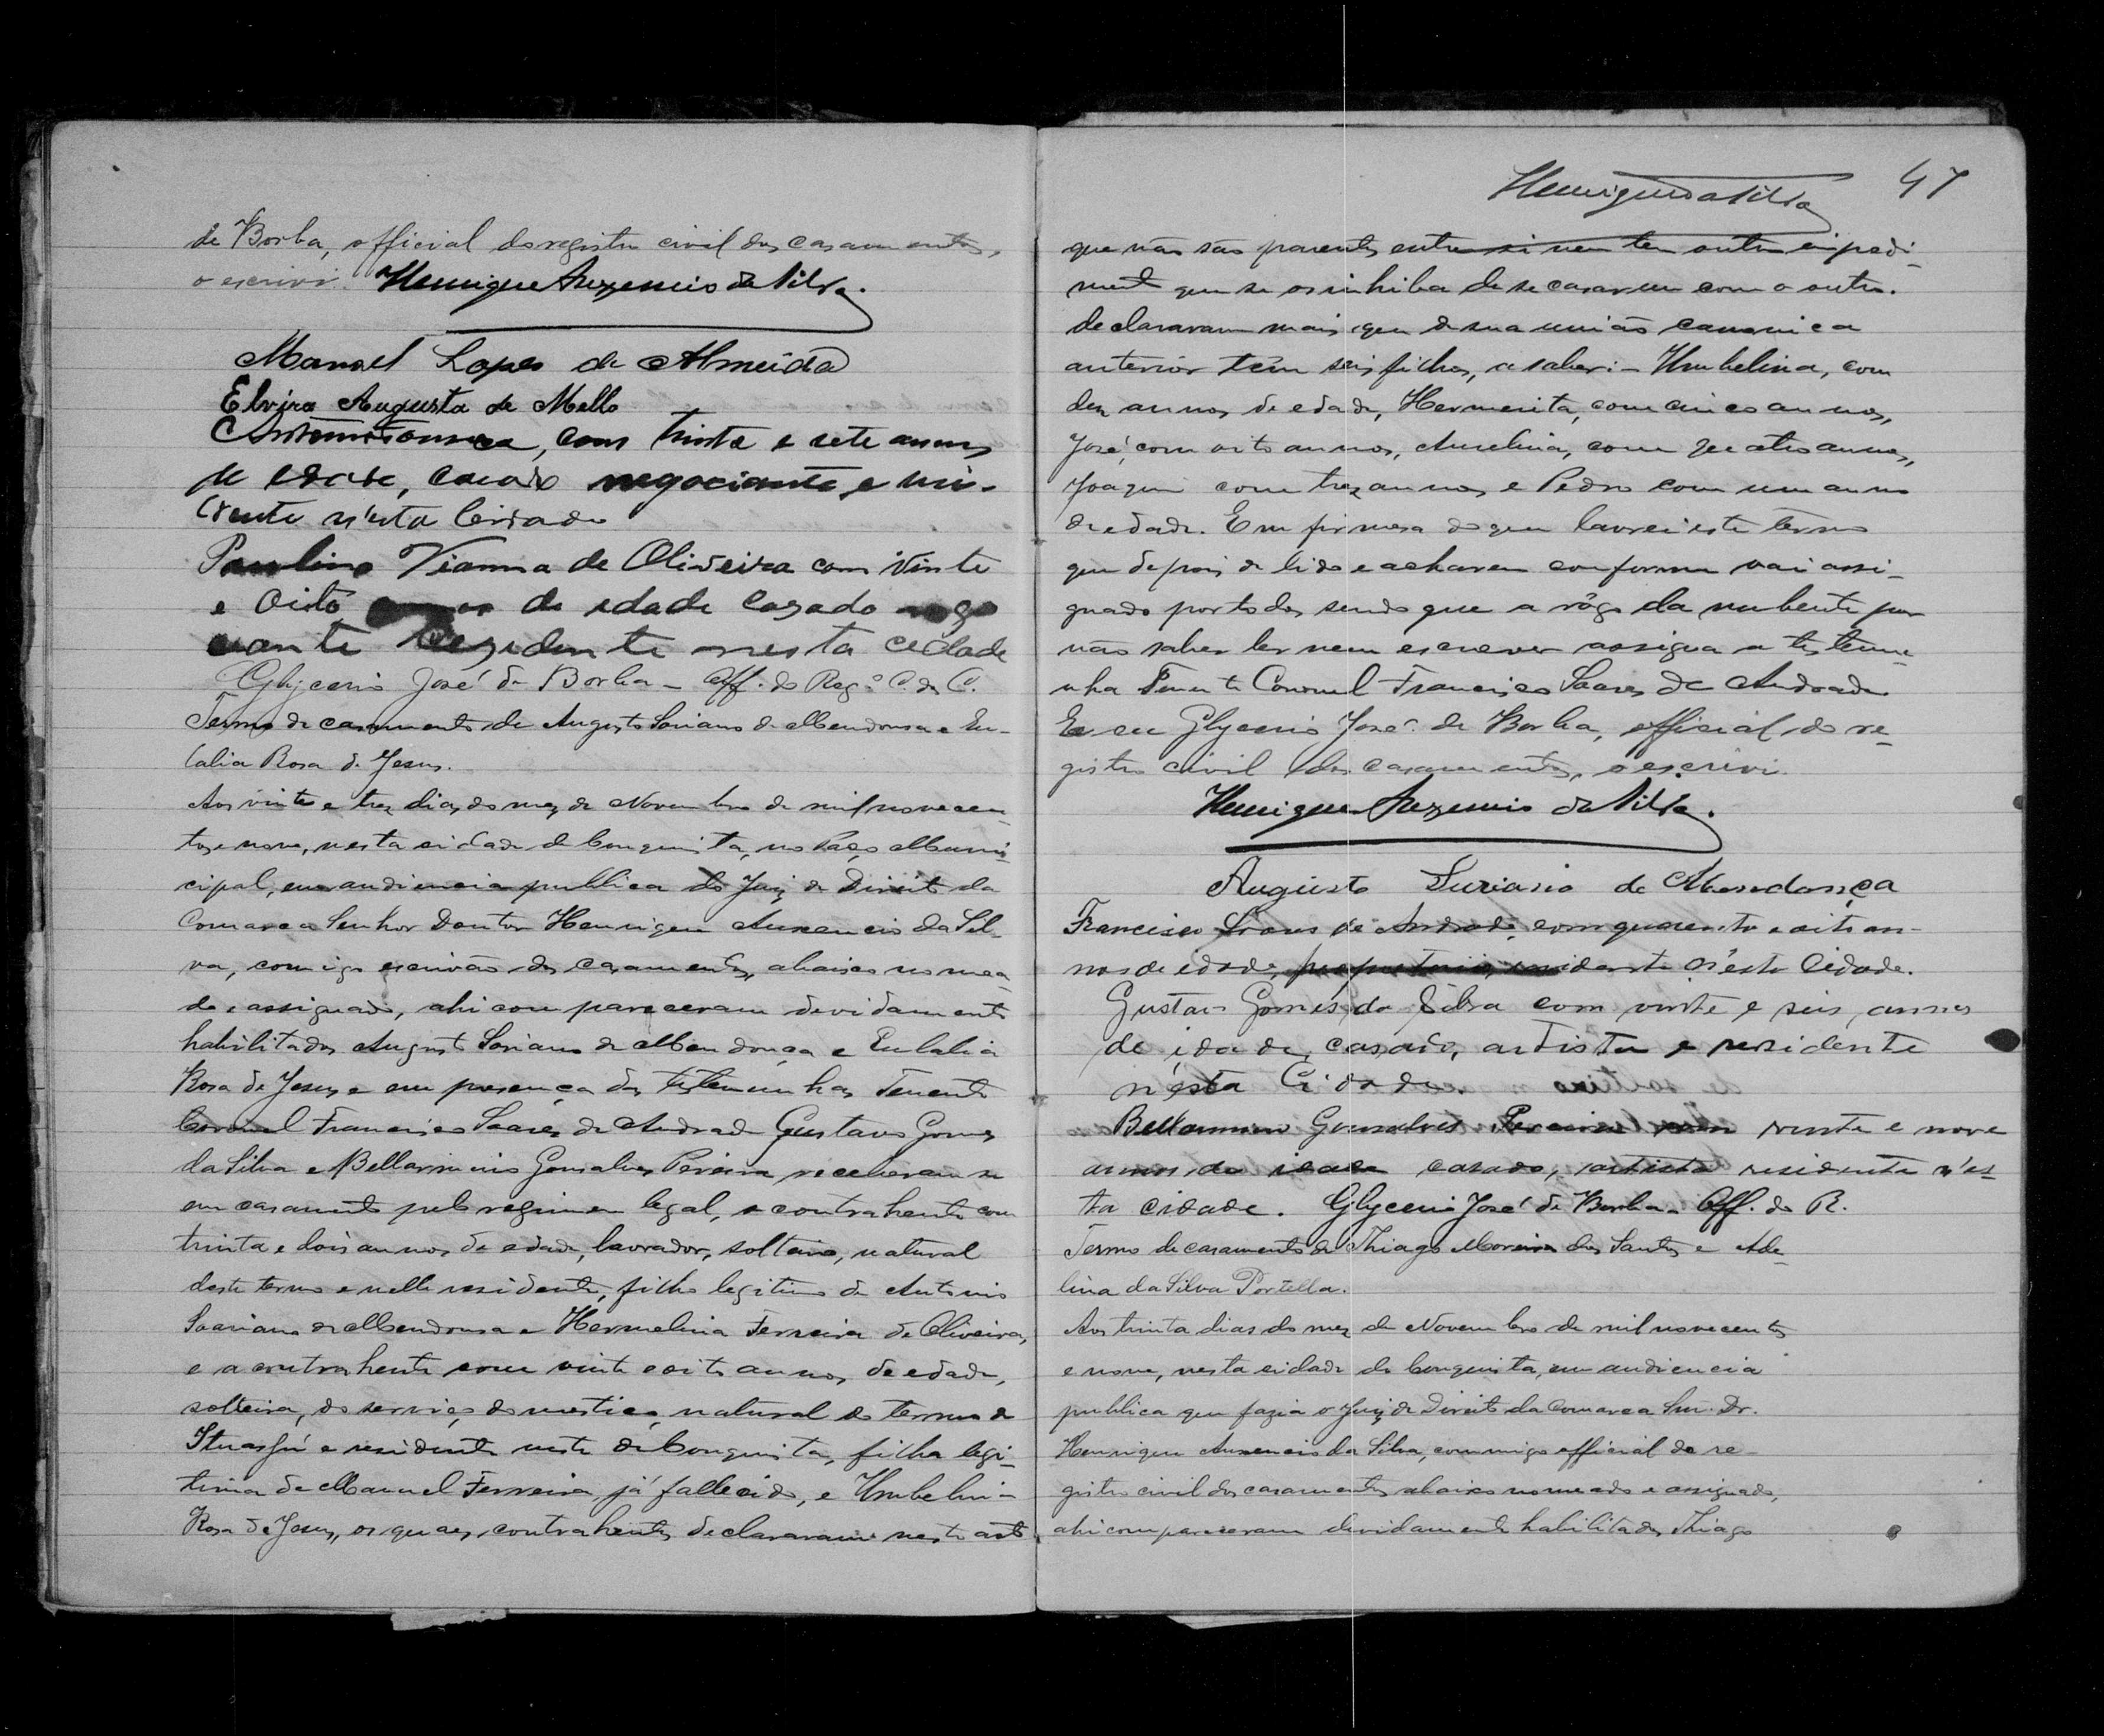 de Borba, official do registro civil dos casamentos,
o escrivi. Henrique Auxencio da Silva.
Manoel Lopes de Almeida
Elvira Augusta de Mello
com trinta e sete annos
de edade, casado negociante e
nesta Cidade
Paulino Vianna de Oliveira com vinte
e Oito de edade cazado nego
ciante Rezidente nesta cedade
Glycerio José de Borba - Off. do Reg.º C. de C.
Termo de casamento de Augusto Soriano de Mendonsa e Eu-
lalia Rosa de Jesus.
Aos vinte e trez dias do mez de Novembro de mil novecen-
tos e nove, nesta cidade de Conquista, no Paço Muni-
cipal, em audiencia publica do Juiz de Direito da
Comarca Senhor Doutor Henrique Auxencio da Sil-
va, comigo escrivão dos casamentos, abaixo nomea-
do e assignado, ahi compareceram devidamente
habilitados Augusto Soriano de Mendonça e Eulalia
Rosa de Jesus e em presença das testemunhas Tenente
Coronel Francisco Soares de Andrade Gustavo Gomes
da Silva e Bellarminio Gonsalves Pereira receberam se
em casamento pelo regimen legal, o contrahente com
trinta e dois annos de edade, lavrador, solteiro, natural
deste termo e nelle residente, filho legitimo de Antonio
Soariano de Mendonsa e Hermelina Ferreira de Oliveira,
e a contrahente com vinte e oito annos de edade,
solteira, do serviço domestico, natural do termo de
Ituassú e residente neste de Conquista, filha legi-
tima de Manuel Ferreira, já fallecido, e Umbelin-
Rosa de Jesus, os quaes contrahentes declararam neste acto
Henrique da Silva 47
que não são parentes entre si nem tem outro impedi-
mento que se os inhiba de se casarem com o outro.
declararam mais que de sua união canonica
anterior têm seis filhos, a saber: - Umbelina, com
dez annos de edade, Hermenita, com cinco annos,
José, com oito annos, Aurelina, com quatro annos,
Joaquim com trez annos e Pedro com um anno
de edade. Em firmesa do que lavrei este termo
que depois de lido e acharem conforme vai assi-
gnado por todos sendo que a rôgo da nubente por
não saber ler nem escrever assigna a testemu-
nha Tenente Coronel Francisco Soares de Andrade
E eu Glycerio José de Borba, official do re-
gistro civil dos casamentos, o escrivi.
Henrique Auxencio da Silva.
Augusto Suriano de Mendonça
Francisco Soares de Andrade, com quarenta e oito an-
nos de edade, residente n'esta Cidade.
Gustavo Gomes da Silva com vinte e seis annos
de idade, casado, artista e residente
n'esta Cidade.
Bellarmino Gonsalves Pereira com vinte e nove
annos de idade casado, artista residente n'es-
ta cidade. Glycerio José de Borba - Off. do R.
Termo de casamento de Thiago Moreira dos Santos e Ade-
lina da Silva Portella.
Aos trinta dias do mez de Novembro de mil novecentos
e nove, nesta cidade de Conquista, em audiencia
publica que fazia o Juiz de Direito da Comarca Snr. Dr.
Henrique Auxencio da Silva, commigo official do re-
gistro civil dos casamentos abaixo nomeado e assignado,
ahi compareceram devidamente habilitados Thiago